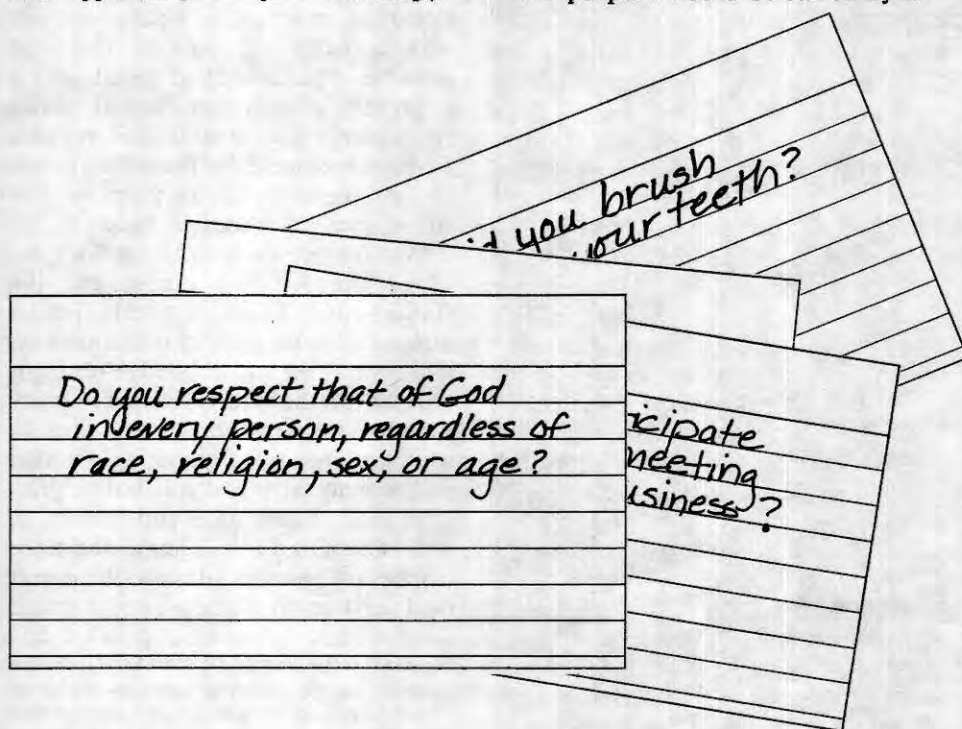 you brush
your teeth?
Do you respect that of God
in every person, regardless of
race, religion, sex, or age?
icipate
meeting
usiness?